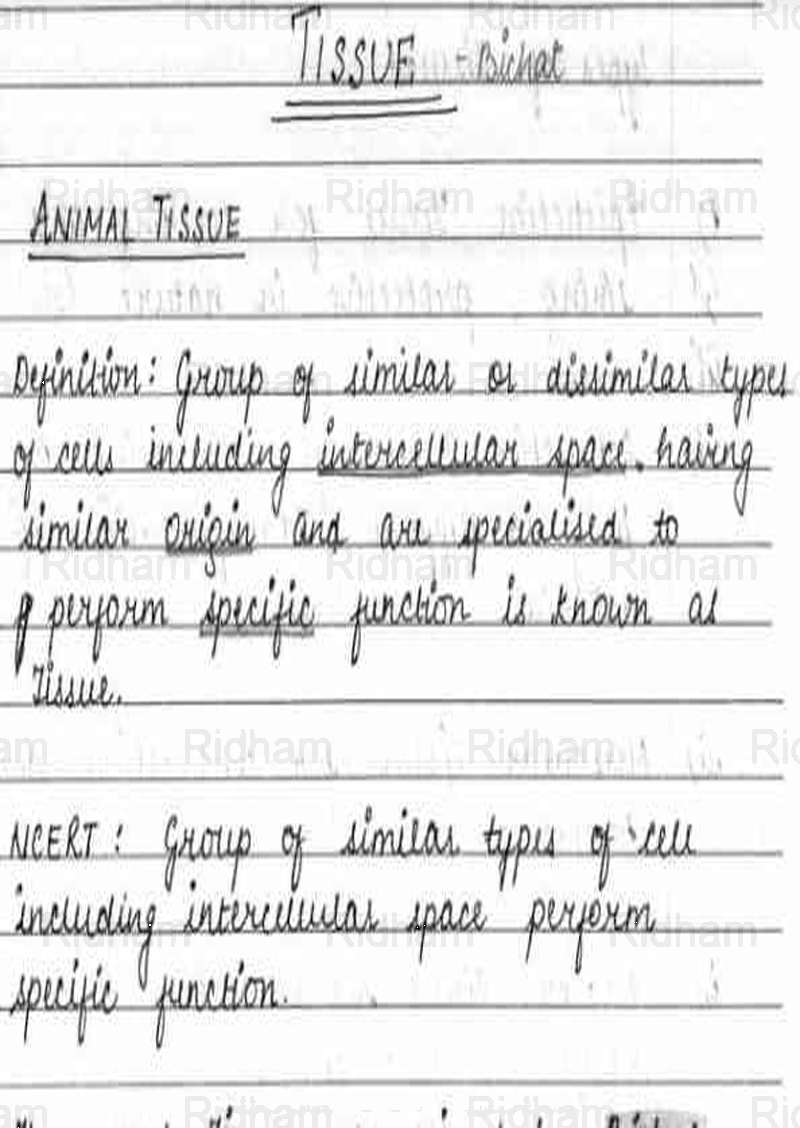 TISSUE - Bichat
ANIMAL TISSUE
Definition: Group of similar or dissimilar types
of cells including intercellular space. having
similar origin and are specialised to
perform specific function is known as
Tissue.
NCERT: Group of similar types of cell
including intercellular space perform
specific function.
Ridham